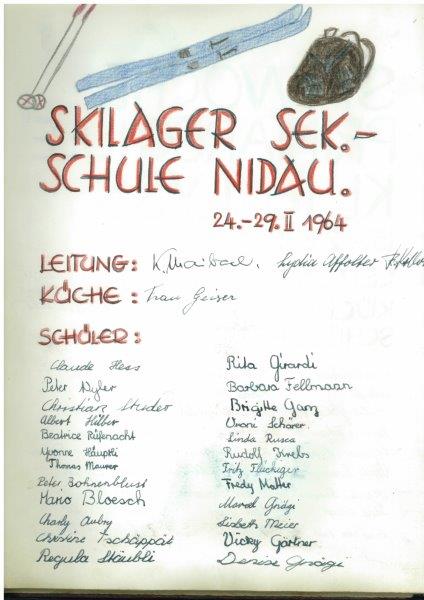 SKILAGER SEK.-
SCHULE NIDAU.
24.-29. II 1964
LEITUNG: K. Maibach. Lydia Affolter
KÜCHE: Frau Geiser
SCHÜLER:
Claude Hess
Peter Wyler
Christian Studer
Albert Hilber
Beatrice Rüfenacht
Yvonne Häuptli
Thomas Maurer
Peter Bohnenblust
Mario Bloesch
Charly Aubry
Christine Tschäppät
Regula Stäubli
Rita Girardi
Barbara Fellmann
Brigitte Ganz
Vroni Schärer.
Linda Rusca
Rudolf Krebs
Fritz Flückiger
Fredy Matter
Marcel Gnägi
Lisbeth Meier
Vicky Gärtner
Denise Gnägi